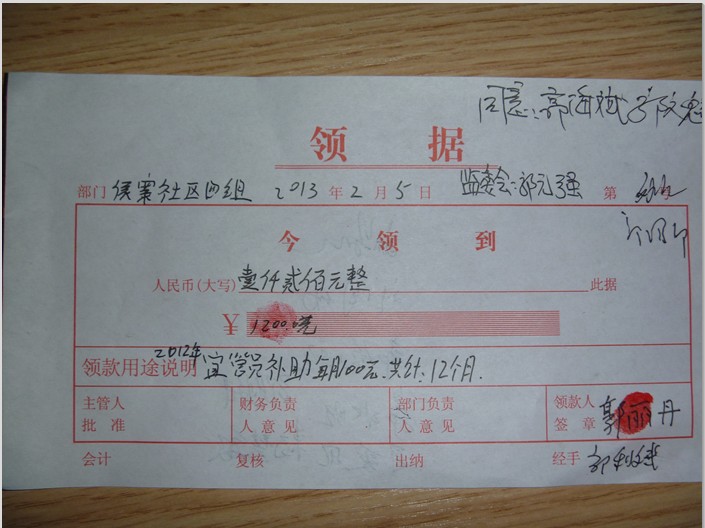 同意:郭海斌
领 据
部门 侯寨社区四组 2013 年 2 月 5 日 监委会:郭元强 第
今 领 到
人民币(大写) 壹仟贰佰元整 此据
¥ 1200.元
领款用途说明 2012年宜管员补助每月100元.共计.12个月.
主管人 财务负责 部门负责 领款人
批 准 人意见 人意见 签 章 郭丽丹
会计 复核 出纳 经手